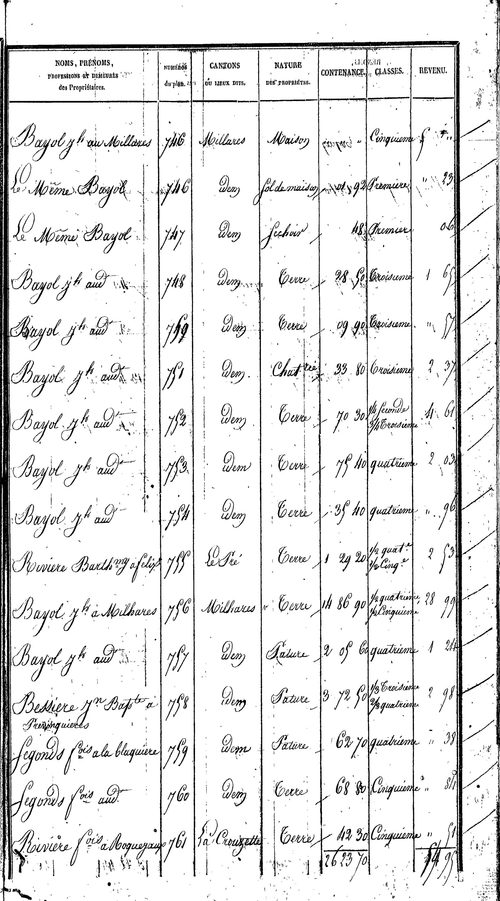 NOMS, PRÉNOMS, PROFESSIONS ET DEMEURES des Propriétaires. | NUMÉROS du plan. | CANTONS OU LIEUX DITS. | NATURE DES PROPRIÉTÉS. | CONTENANCE. | CLASSES. | REVENU.
Bayol jh au Millares 746 Millares Maison " Cinquieme 5 "
Le Même Bayol 746 idem sol de maison 01 92 Premiere " 23
Le Même Bayol 747 idem sechoir 48 Premier 06
Bayol jh aud 748 idem Terre 28 50 Troisieme 1 65
Bayol jh aud 749 idem Terre 09 90 Troisieme " 57
Bayol jh aud 751 idem Chatrée 33 80 Troisieme 2 37
Bayol jh aud 752 idem Terre 70 30 1/2 Seconde 1/2 Troisieme 4 61
Bayol jh aud 753 idem Terre 75 40 quatrieme 2 03
Bayol jh aud 754 idem Terre 35 40 quatrieme " 96
Riviere Barthmy à felix 755 Le Pré Terre 1 29 20 1/2 quate 1/2 Cinqe 2 53
Bayol jh à Milhares 756 Milhares Terre 14 86 90 1/2 quatrieme 1/2 Cinquieme 28 99
Bayol jh aud 757 idem Pature 2 05 60 quatrieme 1 24
Bessiere jn Bapte à 758 idem Pature 3 72 50 1/3 Troisieme 2/3 quatrieme 2 98
Previnquieres
Segonds fois a la blaquiere 759 idem Pature 62 70 quatrieme " 38
Segonds fois aud 760 idem Terre 68 80 Cinquieme " 84
Riviére fois à 761 La Crouzette Terre 42 30 Cinquieme " 51
26 23 70 54 95